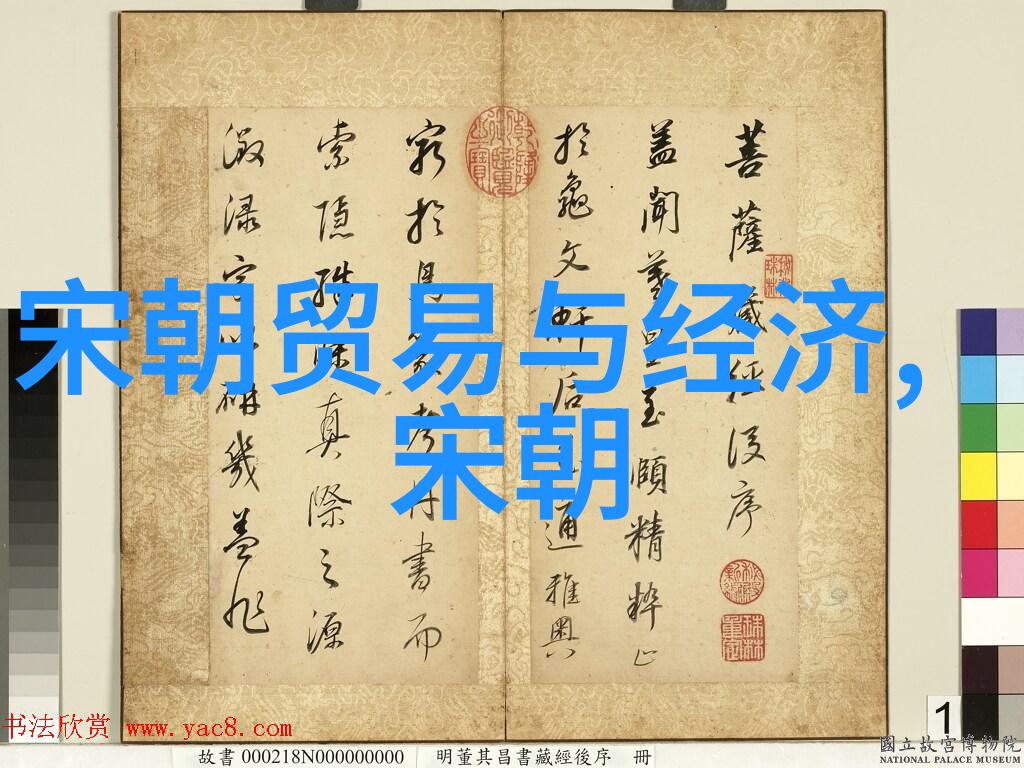 宋朝贸易与经济,
宋朝
菩薩藏經後序
蓋聞羲皇至頤精粹止
於龜文軒后通雅奧
窮於鳥篆考丹書而
索隱殊昧真際之源
徵渌字以研幾蓋非
书法欣赏 www.yac8.com
故書 000218N000000000 明董其昌書藏經後序 冊
1
國立故宮博物院
NATIONAL PALACE MUSEUM